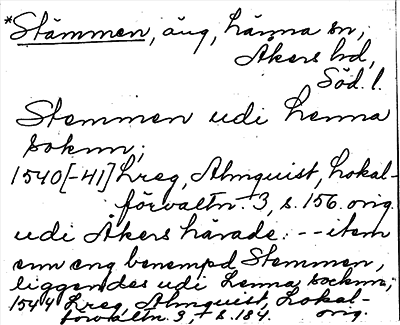 *Stämmen, äng, Länna sn,
Åkers hd,
Söd. l.
Stemmen udi Lenna
soknn;
1540[-41] Lreg, Almquist, Lokal-
förvaltn. 3, s. 156. orig.
udi Åkers härade: -- item
enn eng benempd Stemmen,
liggendes udi Lenna socknn;
1544 Lreg, Almquist, Lokal-
förvaltn. 3, s. 184. orig.